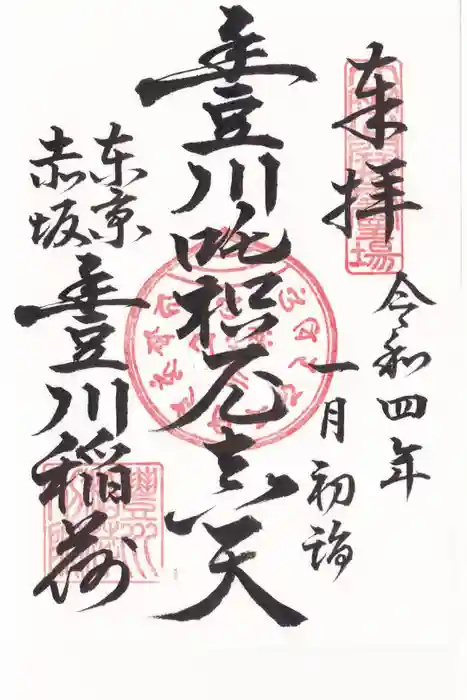 奉拝
令和四年
一月初詣
豊川吒枳尼真天
東京
赤坂
豊川稲荷